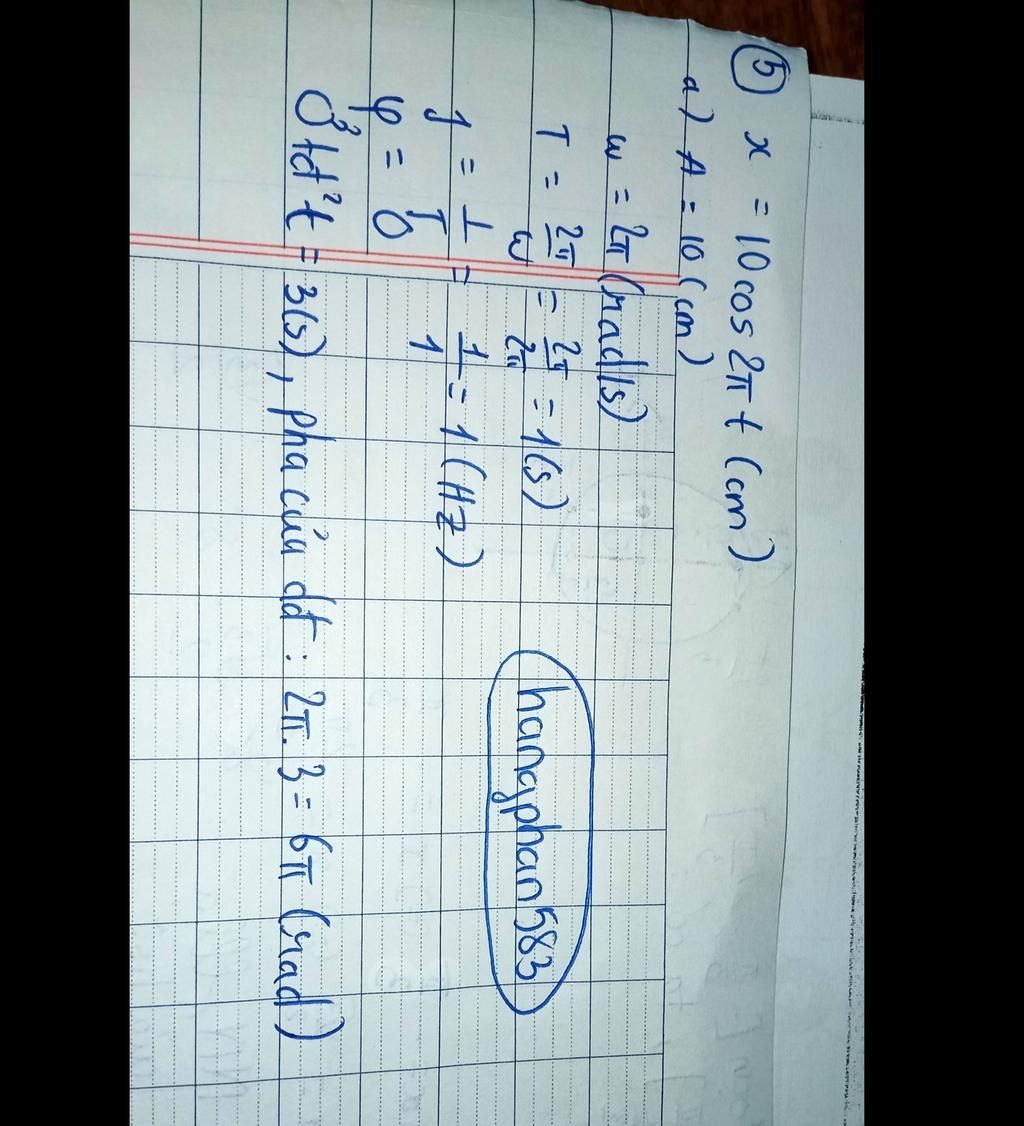 ⑤ x = 10 cos 2πt (cm)
a) A = 10 (cm)
ω = 2π (rad/s)
T = 2π/ω = 2π/2π = 1(s)
f = 1/T = 1/1 = 1 (Hz)
φ = 0
Ở tđ² t = 3(s), pha của dđ : 2π.3 = 6π (rad)
hangphan583